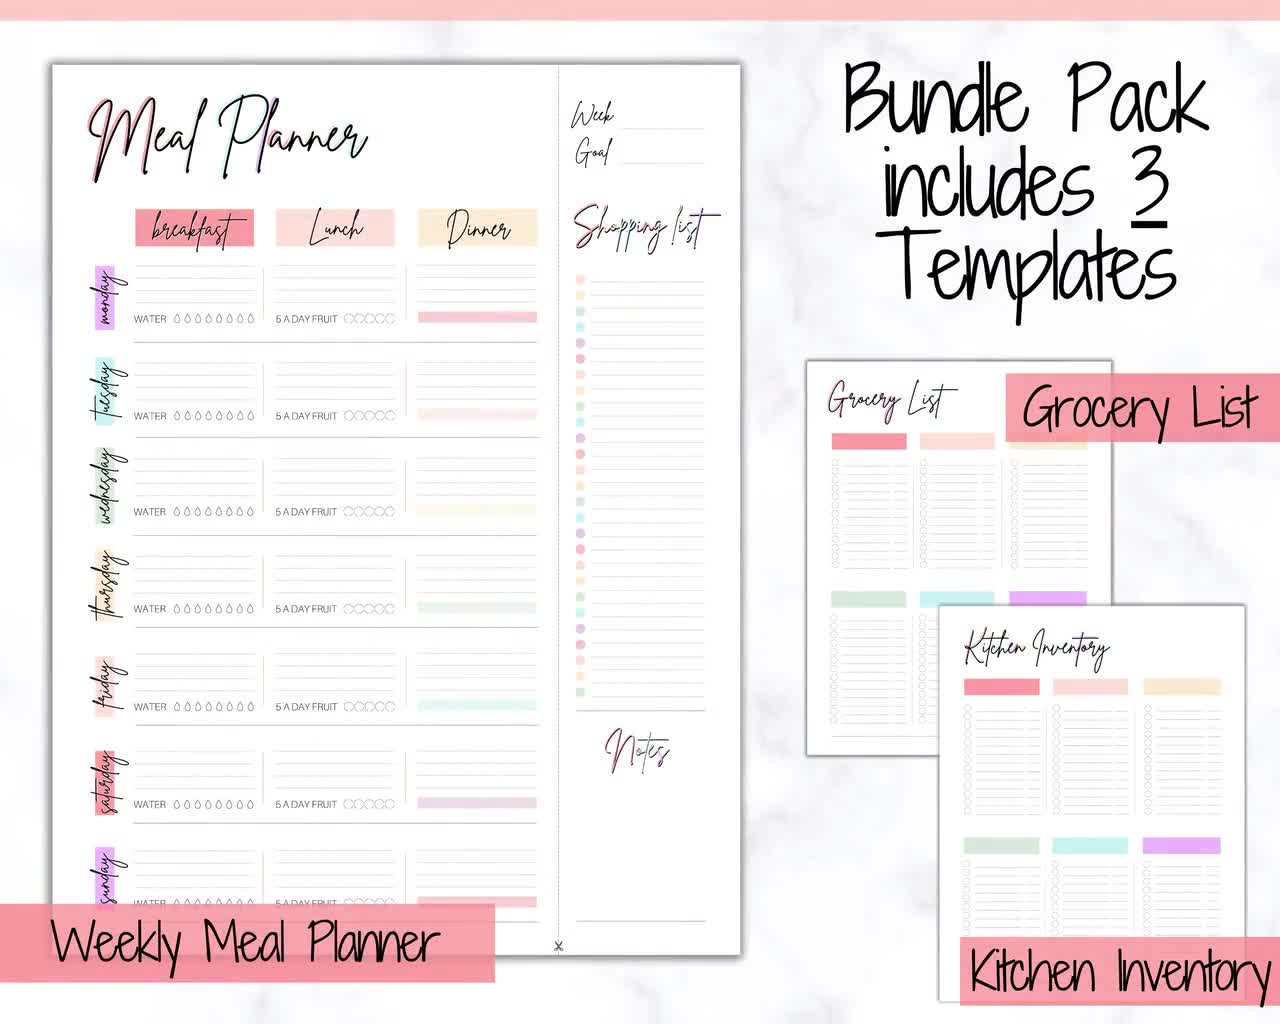 Meal Planner
breakfast
Lunch
Dinner
monday
WATER
5 A DAY FRUIT
tuesday
WATER
5 A DAY FRUIT
wednesday
WATER
5 A DAY FRUIT
thursday
WATER
5 A DAY FRUIT
friday
WATER
5 A DAY FRUIT
saturday
WATER
5 A DAY FRUIT
sunday
WATER
5 A DAY FRUIT
Week
Goal
Shopping list
Notes
Weekly Meal Planner
Bundle Pack
includes 3
Templates
Grocery List
Grocery List
Kitchen Inventory
Kitchen Inventory